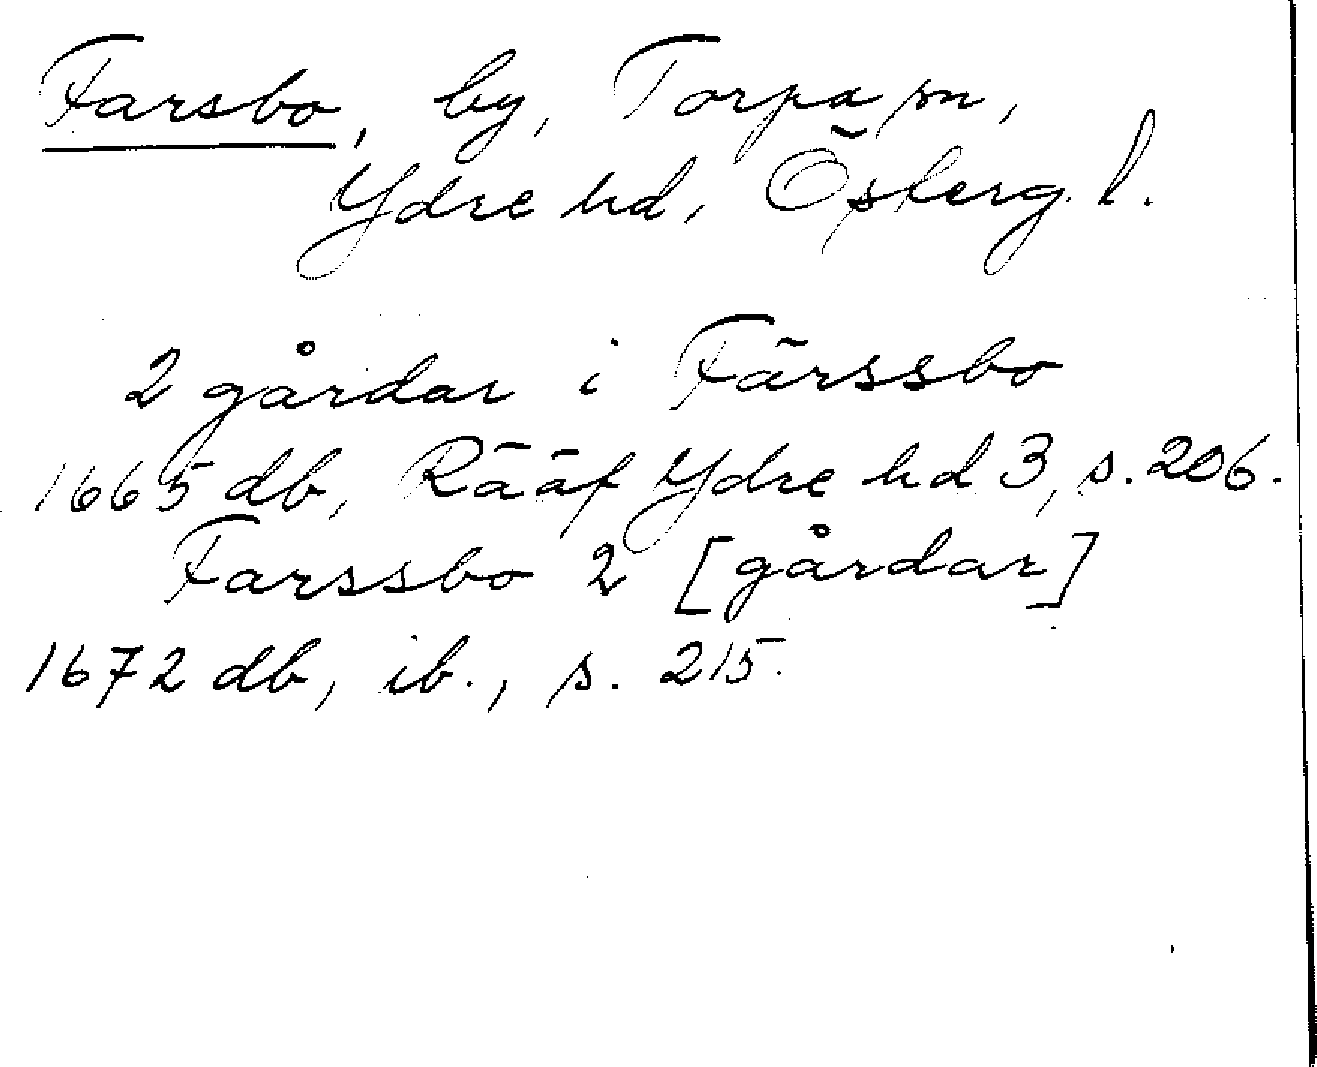 Farsbo, by, Torpa sn,
Ydre hd, Österg. l.
2 gårdar i Färssbo
1665 db, Rääf Ydre hd 3, s. 206.
Farssbo 2 [gårdar]
1672 db, ib., s. 215.